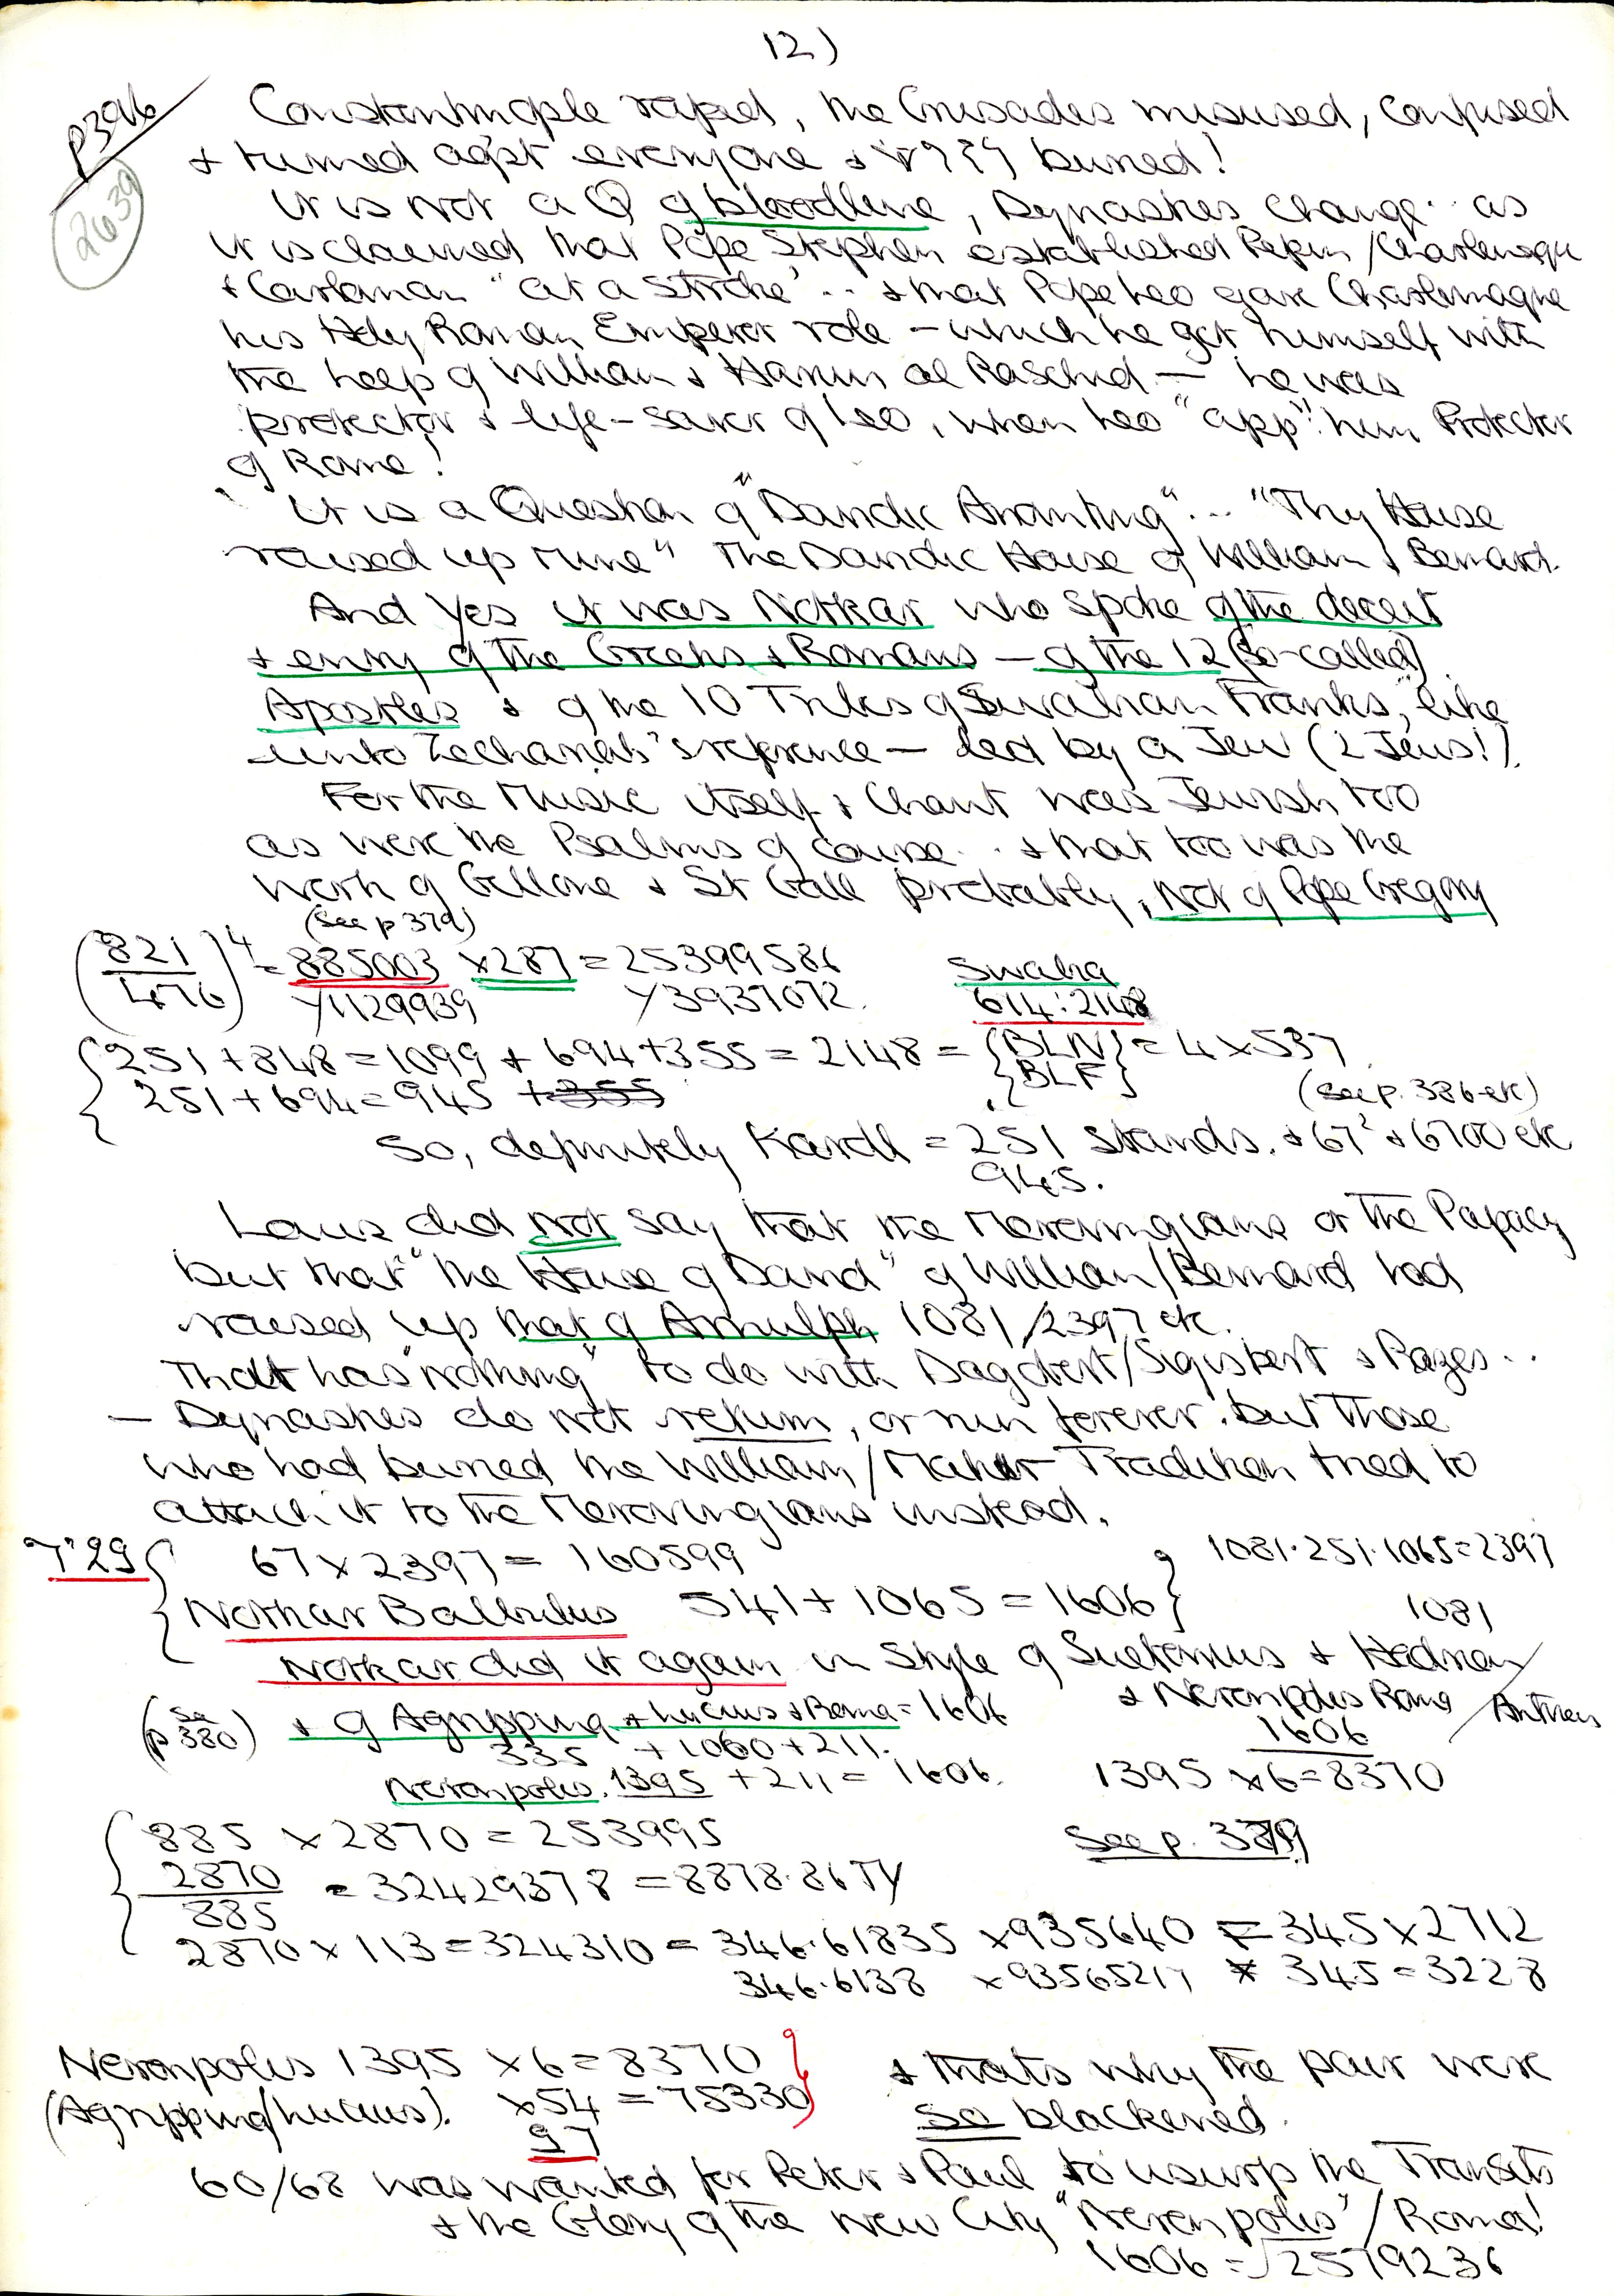 12)
p396
2639
Constantinople raped, the Crusades misused, confused
+ turned agst everyone + buried!
It is not a Q of bloodline, Dynasties change.. as
it is claimed that Pope Stephen established Pepin / Charlemagne
+ Carloman "at a stroke".. + that Pope Leo gave Charlemagne
his Holy Roman Emperor role – which he got himself with
the help of William + Harun al Raschid – he was
protector + life-saver of Leo, when Leo "app": him Protector
of Rome!
It is a Question of "Davidic Anointing"... "Thy House
raised up mine" The Davidic House of William + Bernard.
And Yes it was Notkar who spoke of the deceit
+ envy of the Greeks + Romans – of the 12 (so-called)
Apostles + of the 10 Tribes of Swabian Franks, like
unto Zechariah's reference – led by a Jew (2 Jews!).
For the Music itself + Chant was Jewish too
as were the Psalms of course.. + that too was the
work of Gellone + St Gall probably, not of Pope Gregory
(see p 379)
(821/1476)⁴ = 885003 × 287 = 25399586
Y1129939 Y3937072.
Swaha
614:2148
251 + 848 = 1099 + 694 + 355 = 2148 = {BLN BLF} = 4 × 537
251 + 694 = 945 + 355
(see p. 386 etc)
So, definitely Karoll = 251 stands. + 67² + 6700 etc
945.
Louis did not say that the Merovingians or the Papacy
but that "the House of David" of William/Bernard had
raised up that of Arnulph 1081/2397 etc.
That has "nothing" to do with Dagobert/Sigisbert + Razes..
– Dynasties do not return, or run forever. but those
who had buried the William/Makhir Tradition tried to
attach it to the Merovingians instead.
T'29 { 67 × 2397 = 160599 } 1081·251·1065 = 2397
Notkar Balbulus 541 + 1065 = 1606 1081
Notkar did it again in Style of Suetonius + Hadrian
(see p 380) + of Agrippina + Lucius + Roma = 1606
+ Neronpolis Roma / Antheus
1606
335 + 1060 + 211.
Neronpolis. 1395 + 211 = 1606. 1395 × 6 = 8370
885 × 2870 = 253995 See p. 379
2870/885 = 32429378 = 8878·86 TY
2870 × 113 = 324310 = 346·61835 × 935640 = 345 × 2712
346·6138 × 93565217 * 345 = 3228
Neronpolis 1395 × 6 = 8370 + that's why the pair were
(Agrippina/Lucius). × 54 = 75330 so blackened.
97
60/68 was wanted for Peter + Paul to usurp the Transits
+ the Glory of the new City "Neronpolis" / Roma!
1606 = √2579236